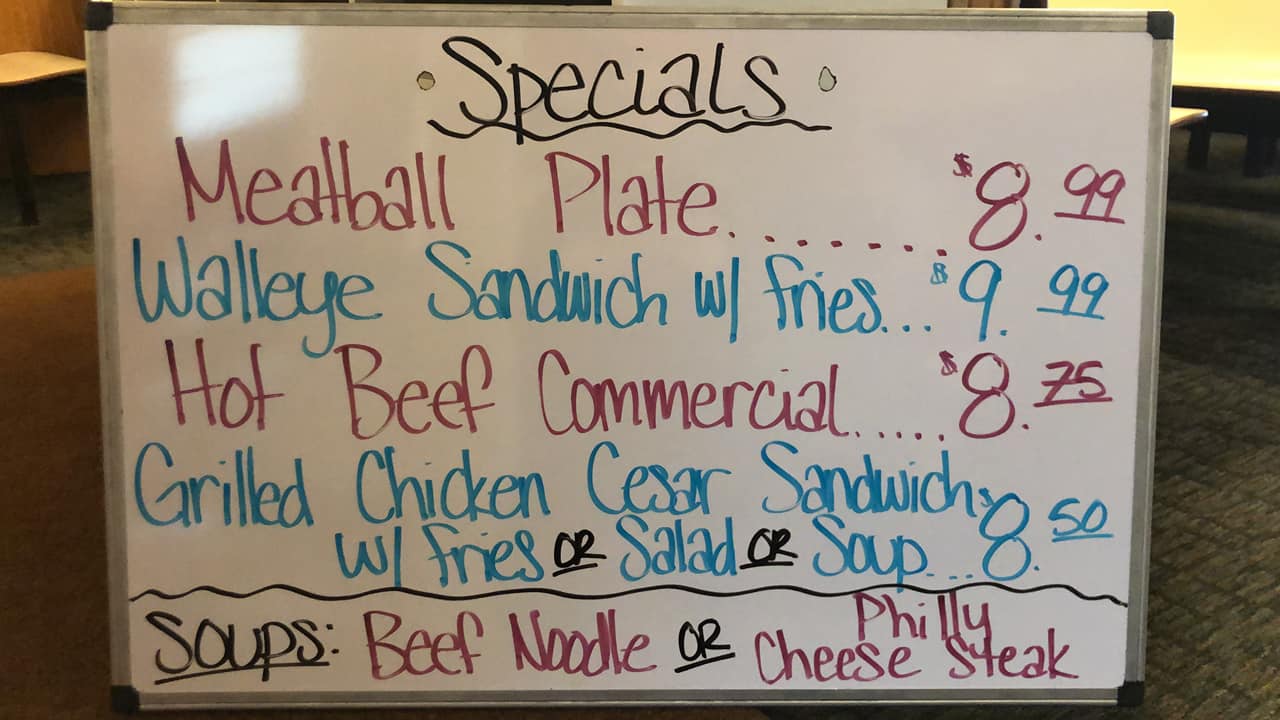 Specials
Meatball Plate........$8.99
Walleye Sandwich w/ fries...$9.99
Hot Beef Commercial.....$8.75
Grilled Chicken Cesar Sandwich
w/ fries OR Salad OR Soup...$8.50
Soups: Beef Noodle OR Philly
Cheese Steak